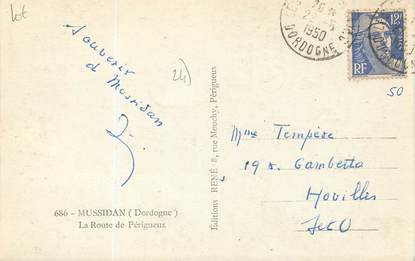 lot
26
1950
DORDOGNE
12F
RF
Souvenir
de Mussidan
24)
50
Mme Tempère
19 r. Gambetta
Houilles
S et O
Éditions RENÉ, rue Mouchy, Périgueux
686 - MUSSIDAN (Dordogne)
La Route de Périgueux